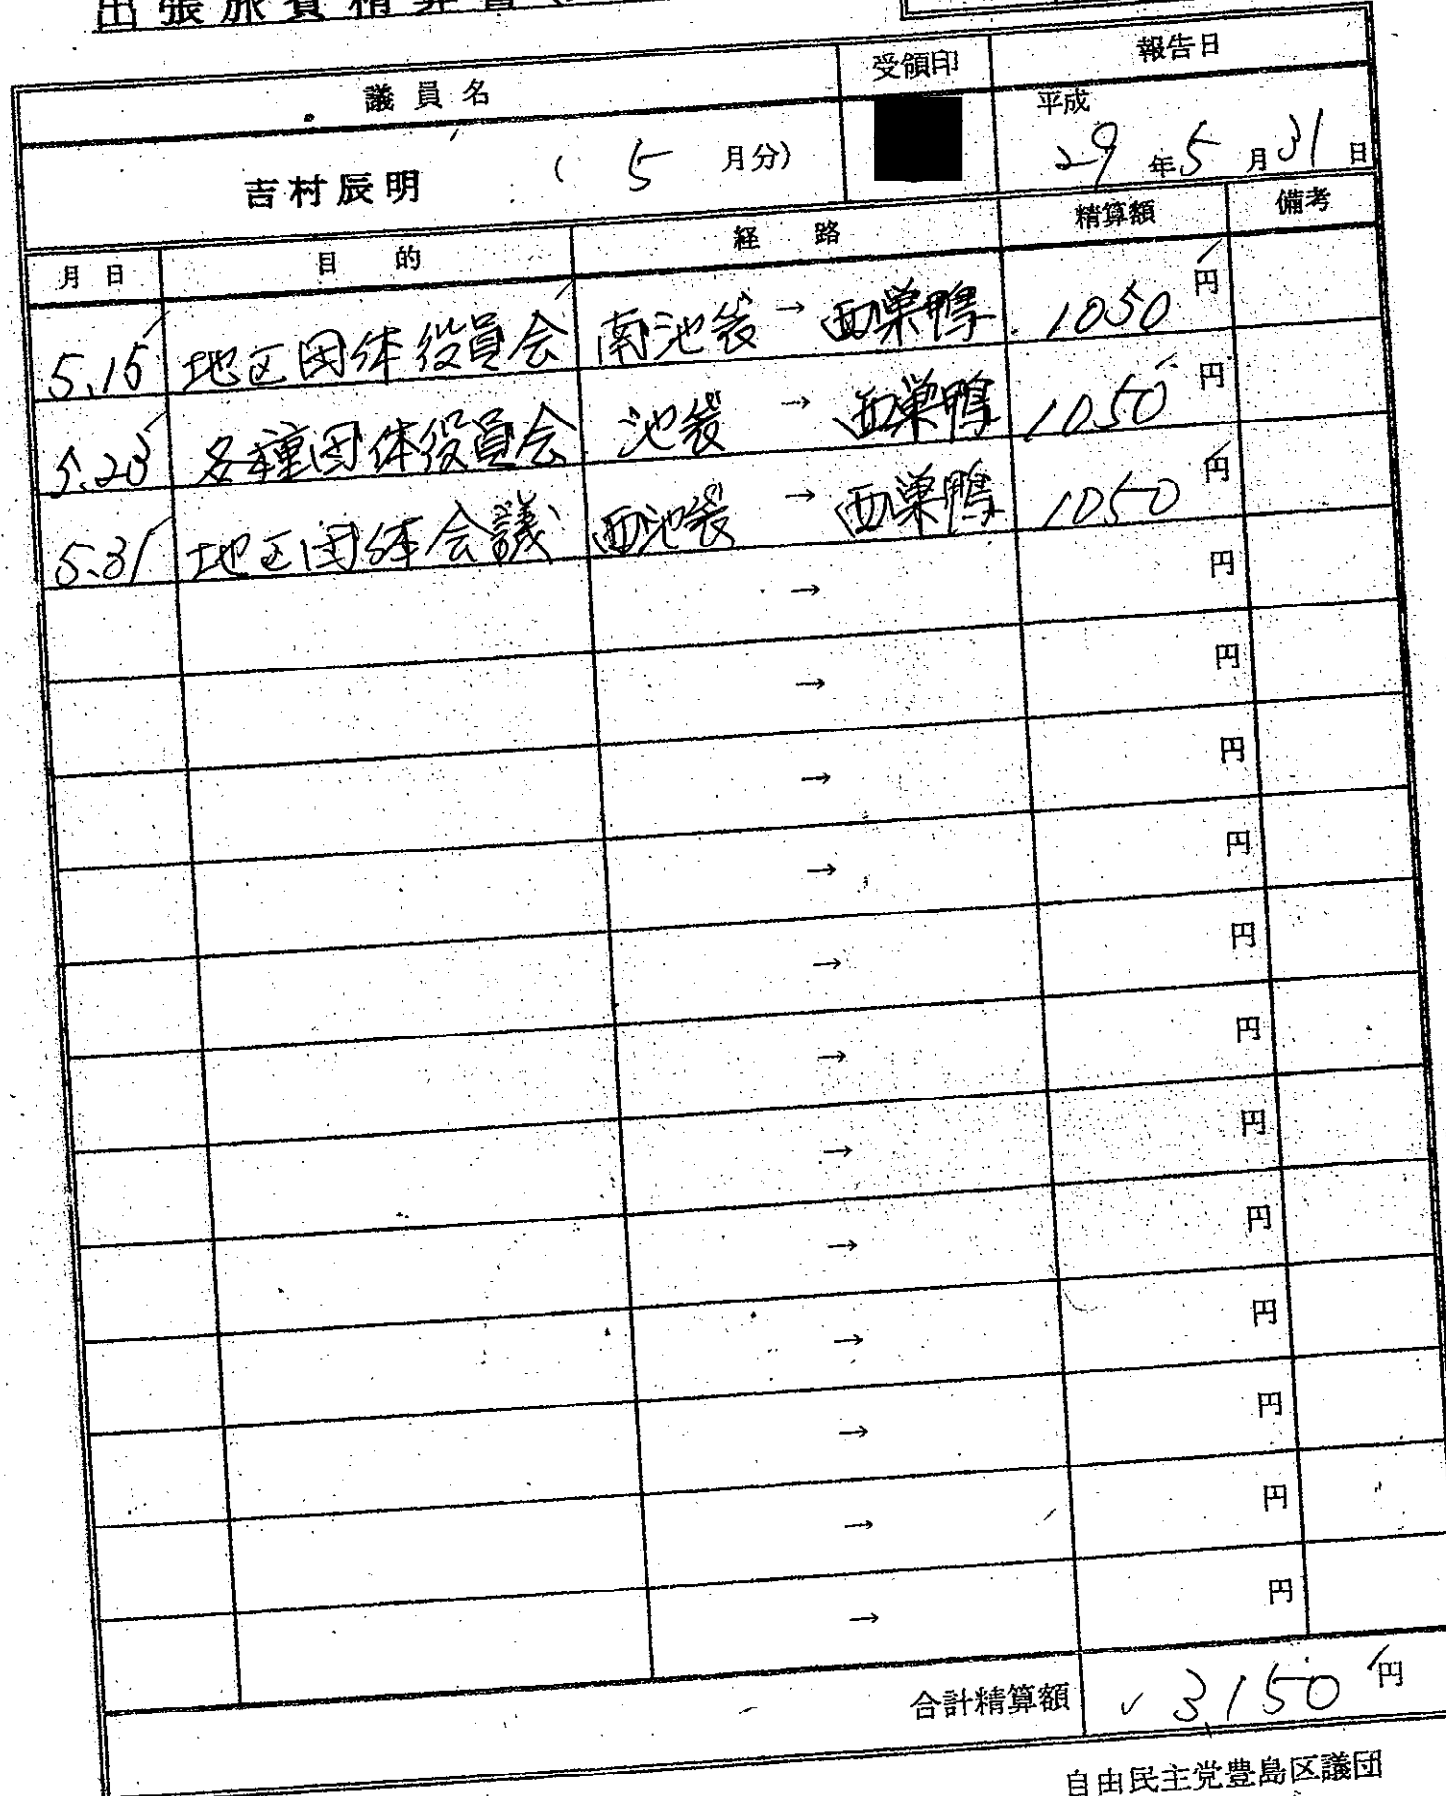 出張旅費精算書
議員名 受領印 報告日
吉村辰明 (5月分) 平成29年5月31日
月日 目的 経路 精算額 備考
5.15 地区団体役員会 南池袋→西巣鴨 1050円
5.23 各種団体役員会 池袋→西巣鴨 1050円
5.31 地区団体会議 西池袋→西巣鴨 1050円
→ 円
→ 円
→ 円
→ 円
→ 円
→ 円
→ 円
→ 円
→ 円
→ 円
→ 円
→ 円
合計精算額 ✓3150円
自由民主党豊島区議団